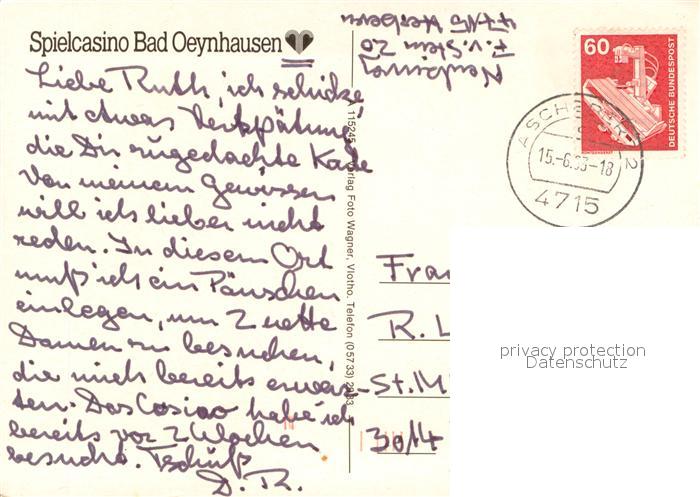 Spielcasino Bad Oeynhausen
Liebe Ruth, ich schicke
mit etwas Verspätung
die Dir zugedachte Karte
Von meinem Gewissen
will ich lieber nicht
reden. In diesem Ort
muß ich ein Päuschen
einlegen, um 2 nette
Damen zu besuchen,
die mich bereits erwar-
ten. Das Casino habe ich
bereits vor 2 Wochen
besucht. Tschüß
D. R.
115245 Verlag Foto Wagner, Vlotho. Telefon (05733) 2833
F. v. Stein 20
4715
60
DEUTSCHE BUNDESPOST
ASCHEBERG
15.-6.83-18
4715
Frau
R. L
St. M
3014
privacy protection
Datenschutz